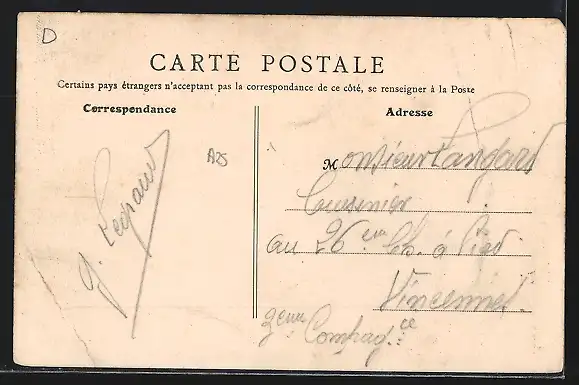 D
CARTE POSTALE
Certains pays étrangers n'acceptant pas la correspondance de ce côté, se renseigner à la Poste
Correspondance
Adresse
A25
Monsieur Langard
Cuisinier
au 26eme Ch. à Pied
Vincennes.
2eme Compag.ce